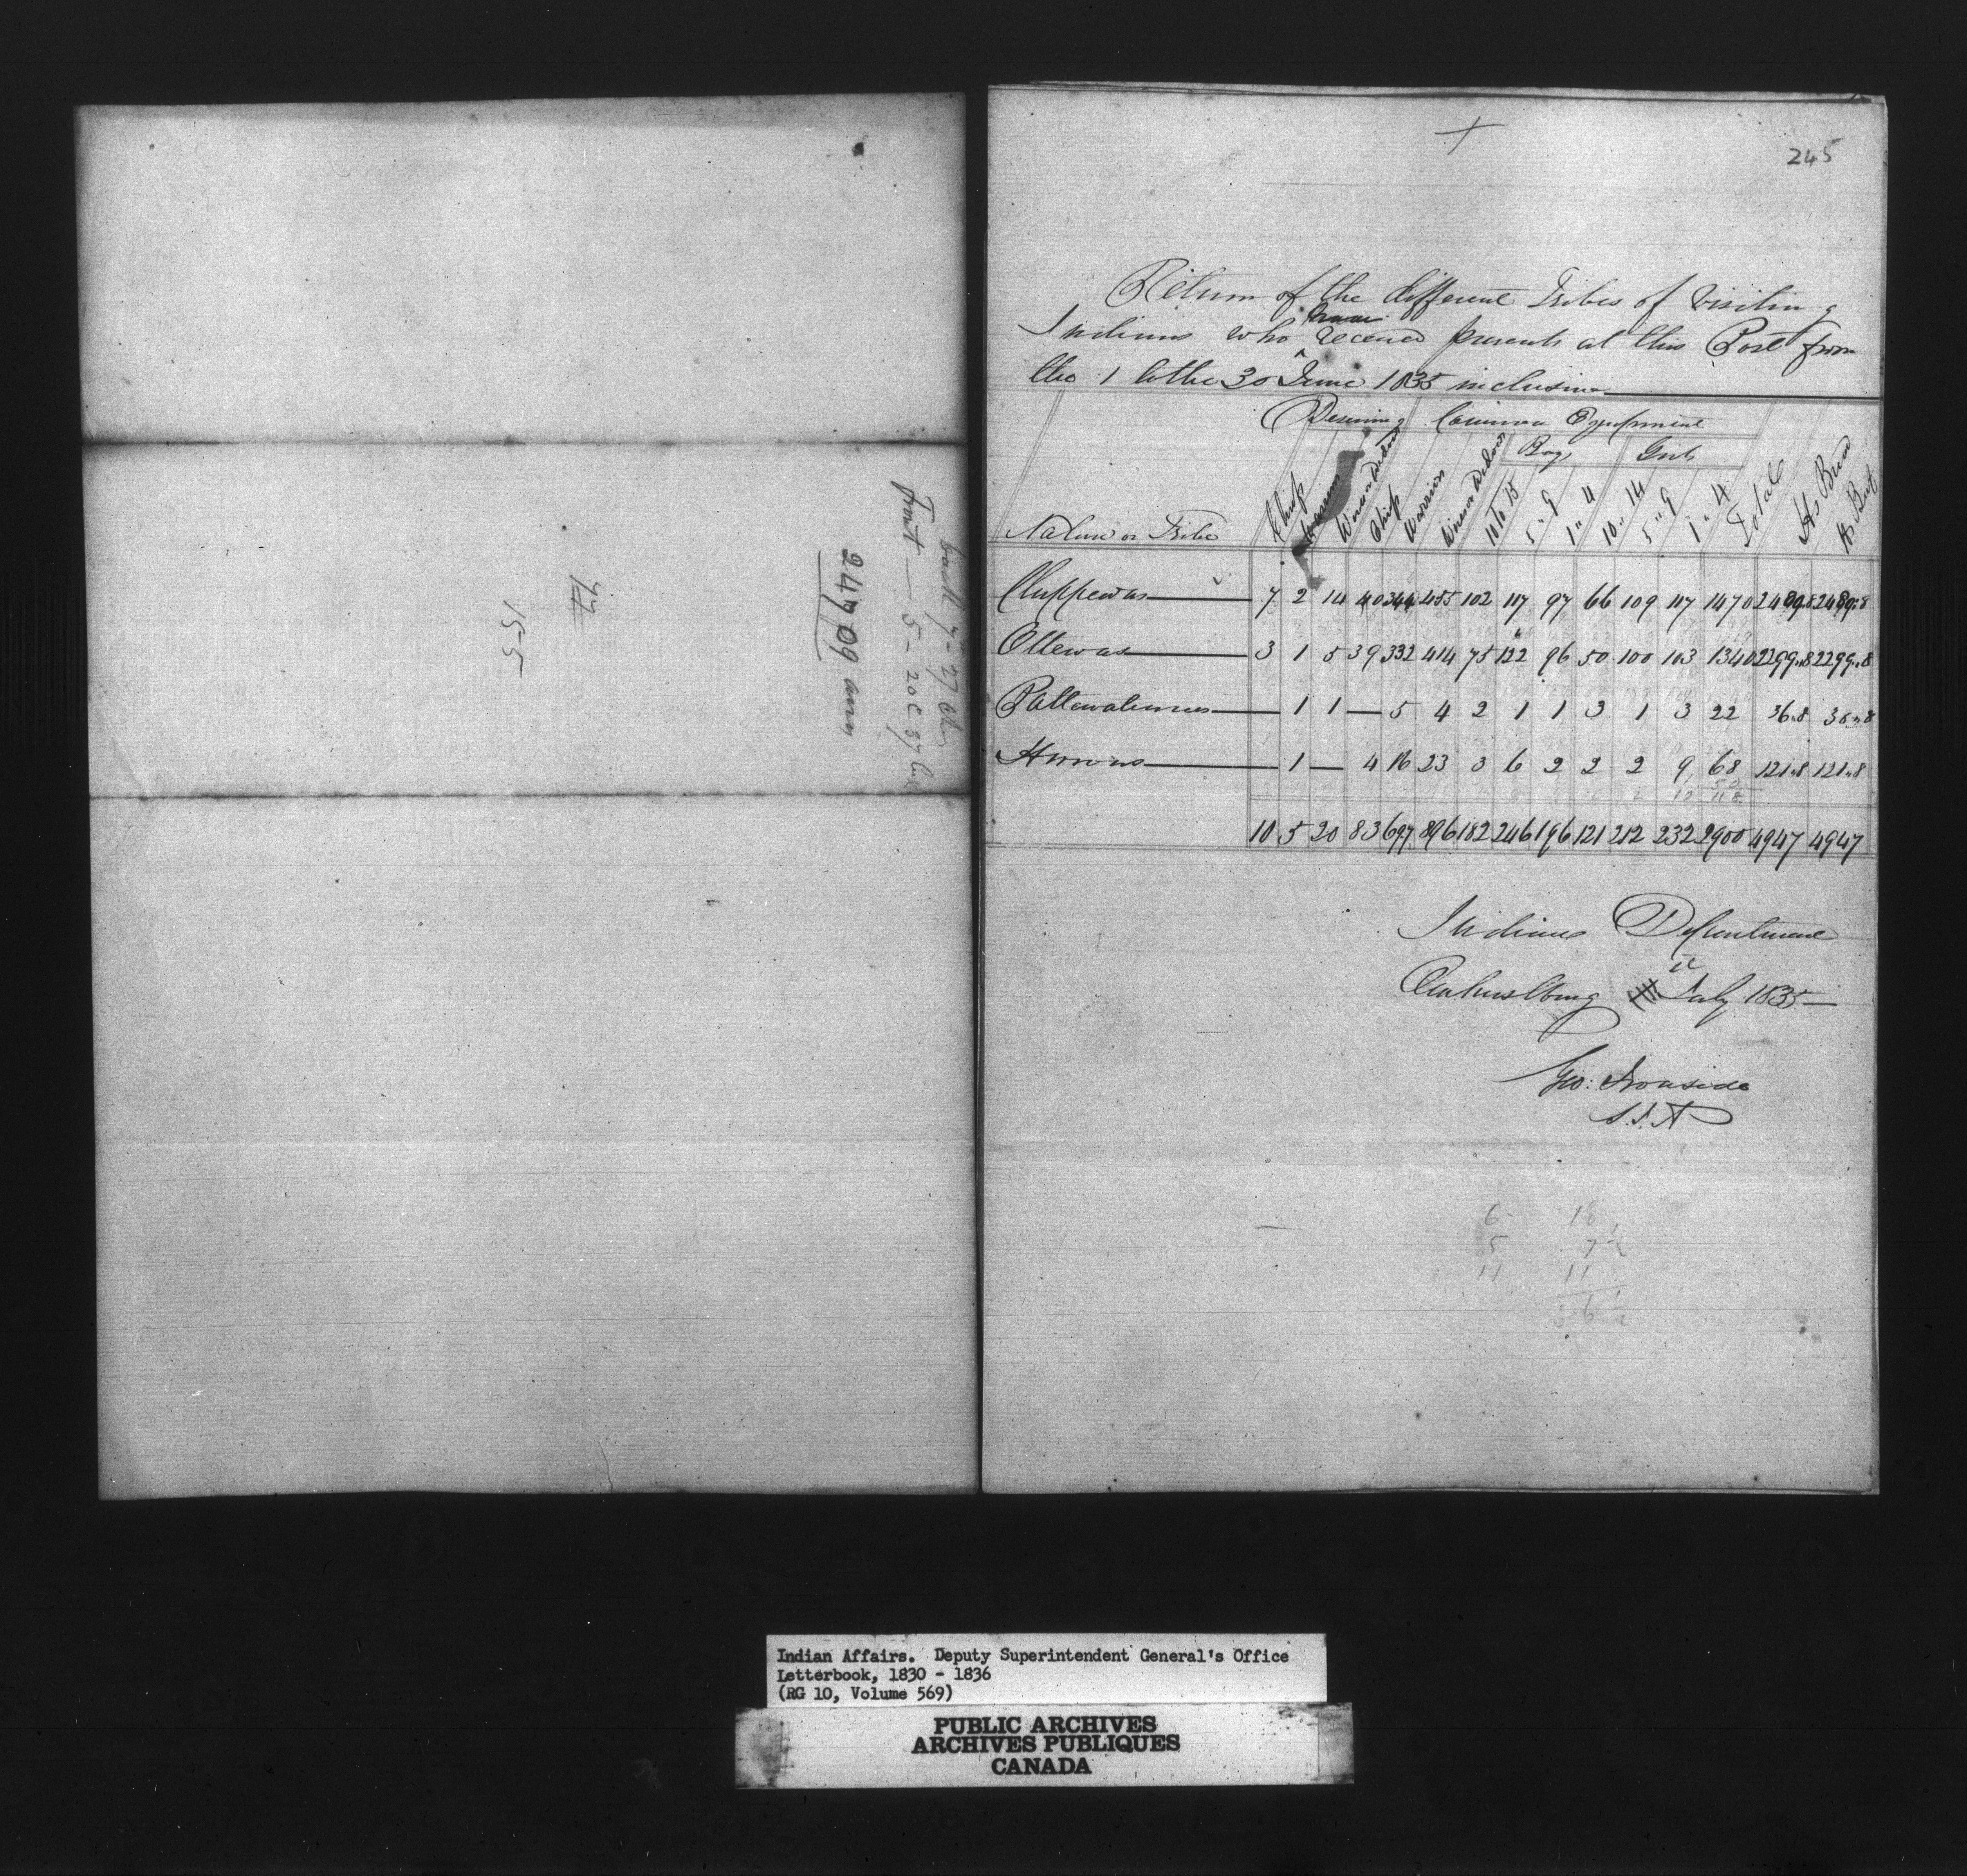 back 7 - 27
front — 5 - 20 C 37
24709
47
15-5
245
Return of the different Tribes of Visiting
Indians who have received presents at this Post from
the 1 to the 30 June 1835 inclusive
Deserving Common Equipment
Boys Girls
Nation or Tribe Chiefs Warriors Women Widows Chiefs Warriors Women Widows 10 to 15 5 " 9 1 " 4 10 " 14 5 " 9 1 " 4 Total
Chippewas 7 2 14 40 344 485 102 117 97 66 109 117 1470 2489"8 2489"8
Ottewas 3 1 5 39 332 414 75 122 96 50 100 103 1340 2299"8 2299"8
Pottewatemies — 1 1 — 5 4 2 1 1 3 1 3 22 36"8 36"8
Hurons — 1 — 4 16 23 3 6 2 2 2 9 68 121"8 121"8
10 5 20 83 697 896 182 246 196 121 212 232 2900 4947 4947
Indian Department
Amherstburg July 1835 —
Geo: Ironside
S.I.A
6 18
5 7 1/2
11 11
36 1/2
Indian Affairs. Deputy Superintendent General's Office
Letterbook, 1830 - 1836
(RG 10, Volume 569)
PUBLIC ARCHIVES
ARCHIVES PUBLIQUES
CANADA